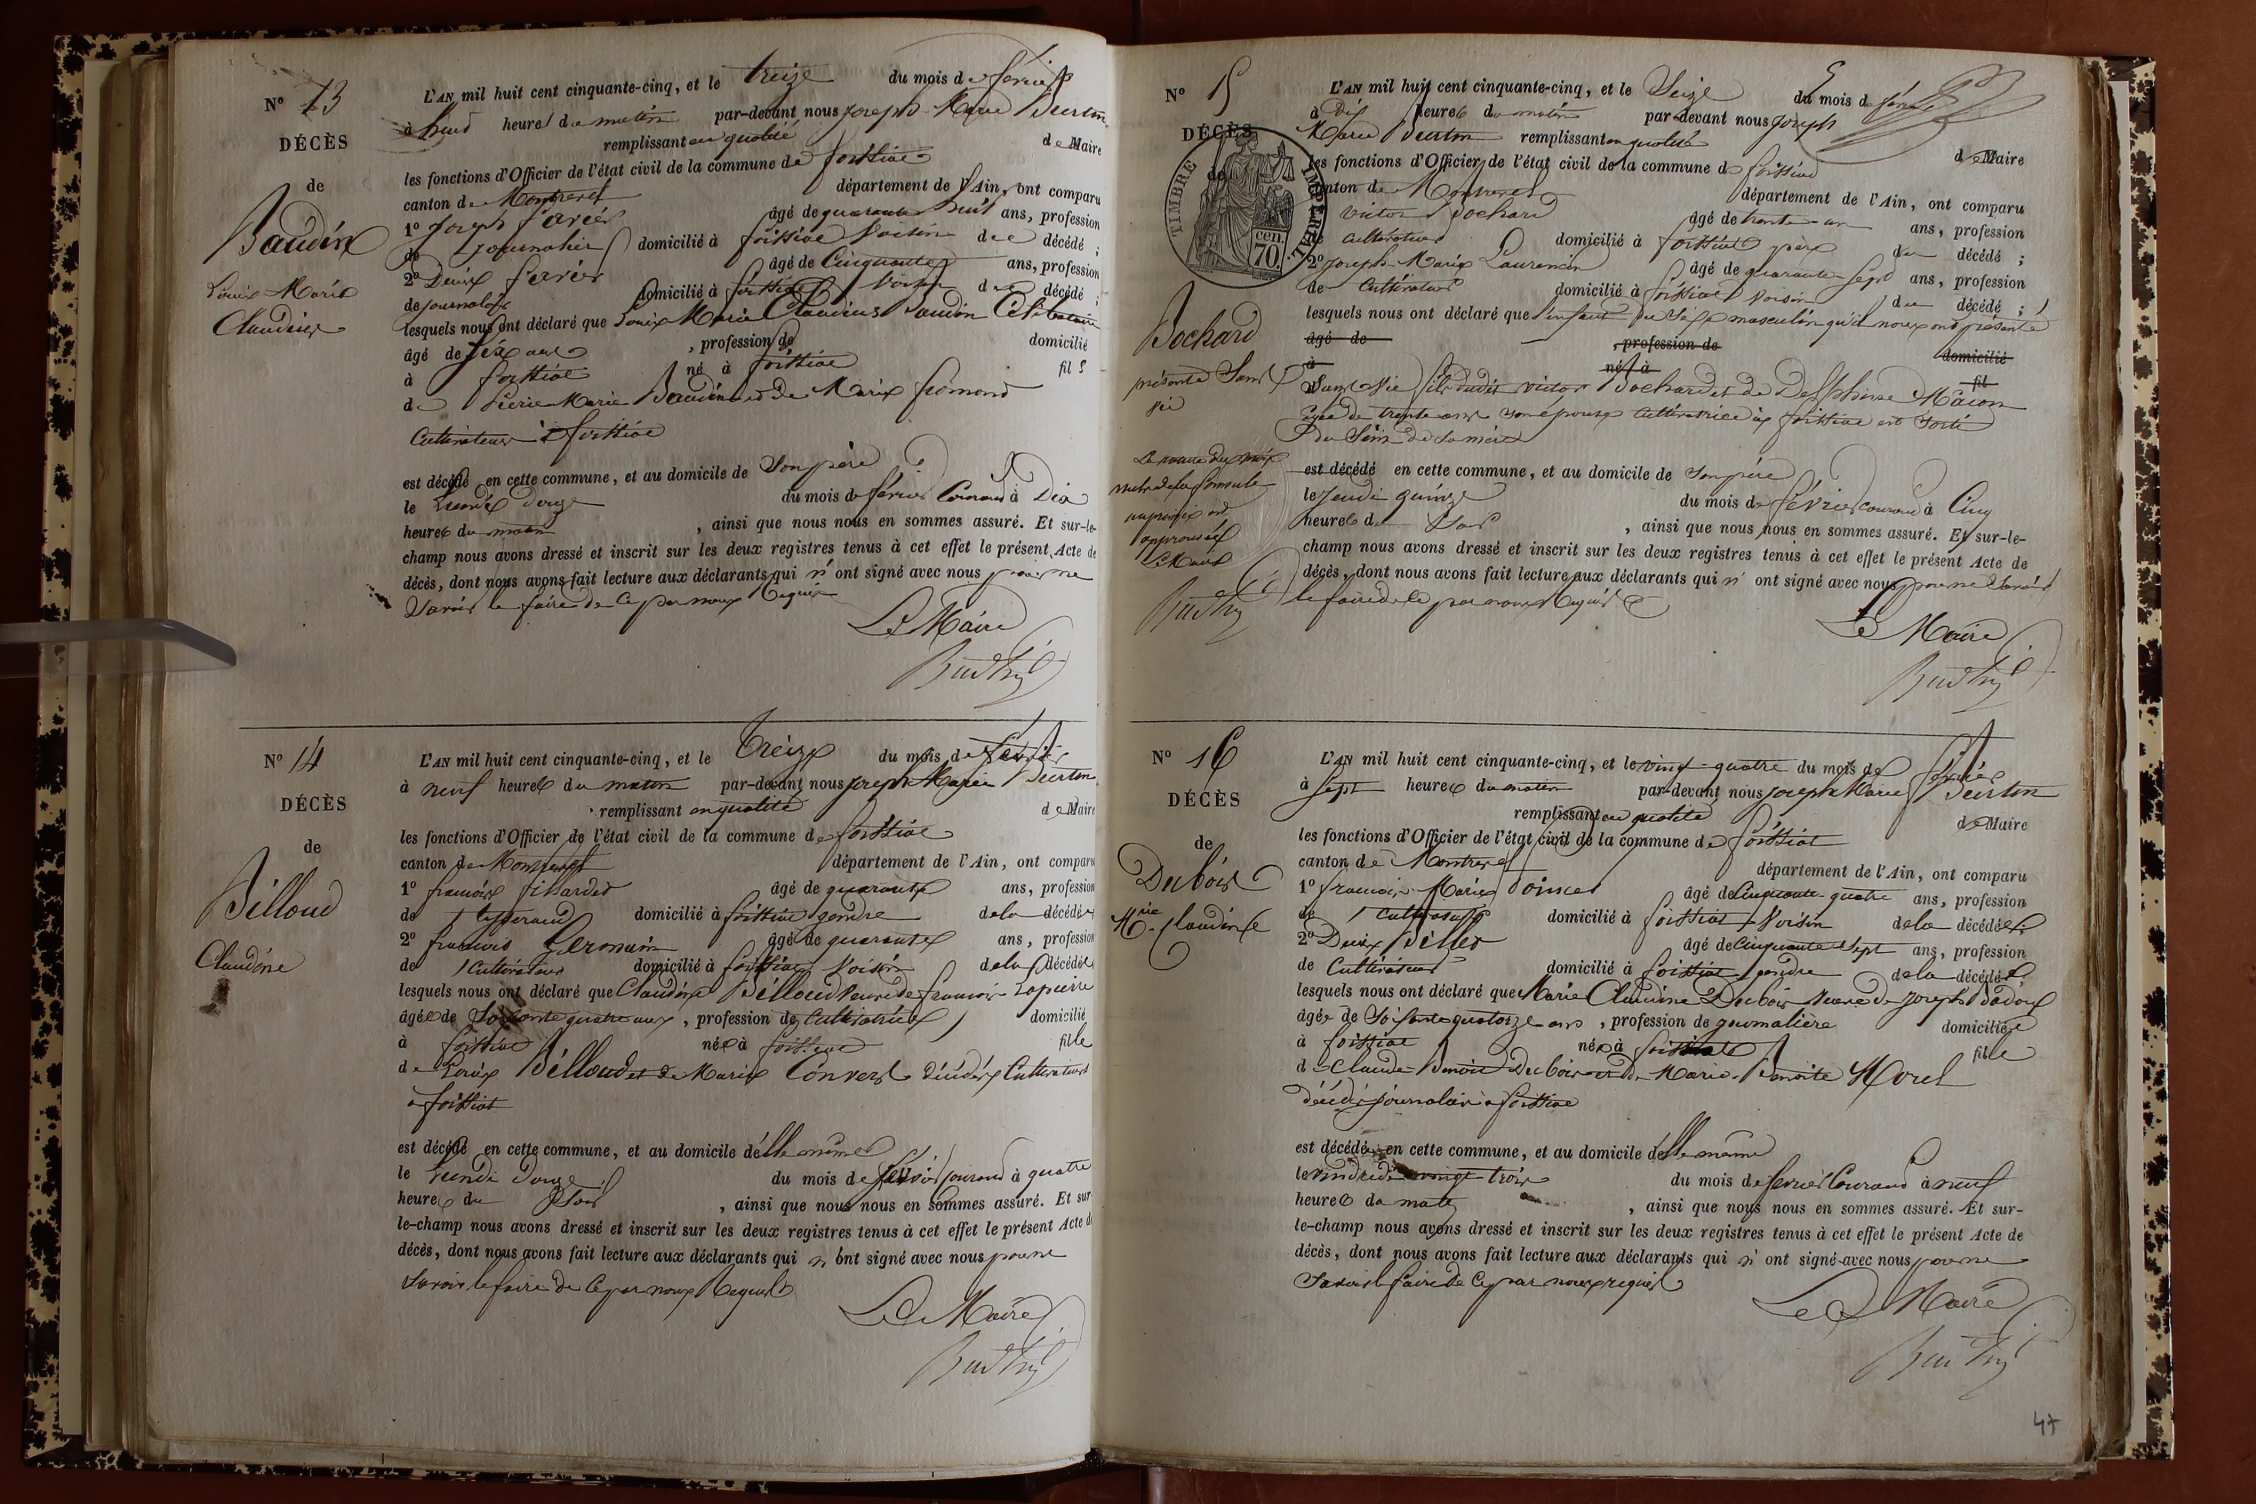 N° 13
DÉCÈS
de
Baudin
Louis Marie
Claudius
L'AN mil huit cent cinquante-cinq, et le treize du mois de février
à huit heures du matin par-devant nous Joseph Marie Buirtin
remplissant en qualité de Maire
les fonctions d'Officier de l'état civil de la commune de foissiat
canton de Montrevel département de l'Ain, ont comparu
1° Joseph âgé de quarante huit ans, profession
de journalier domicilié à foissiat voisin du décédé ;
2° Denix âgé de Cinquante ans, profession
de journalier domicilié à foissiat voisin du décédé ;
lesquels nous ont déclaré que Louis Marie Claudius Baudin Célibataire
âgé de six ans , profession de domicilié
à foissiat né à foissiat fils
de Pierre Marie Baudin et de Marie fromond
Cultivateurs à foissiat
est décédé en cette commune, et au domicile de Son père
le Lundi douze du mois de février Courant à Dix
heures du matin , ainsi que nous nous en sommes assuré. Et sur-le-
champ nous avons dressé et inscrit sur les deux registres tenus à cet effet le présent Acte de
décès, dont nous avons fait lecture aux déclarants qui n'ont signé avec nous pour ne
Savoir le faire de ce par nous Requis
Le Maire
N° 14
DÉCÈS
de
Billoud
Claudine
L'AN mil huit cent cinquante-cinq, et le treize du mois de février
à neuf heures du matin par-devant nous Joseph Marie Buirtin
remplissant en qualité de Maire
les fonctions d'Officier de l'état civil de la commune de foissiat
canton de Montrevel département de l'Ain, ont comparu
1° françois âgé de quarante ans, profession
de tisserand domicilié à foissiat gendre de la décédée
2° françois Germain âgé de quarante ans, profession
de Cultivateur domicilié à foissiat Voisin de la décédée
lesquels nous ont déclaré que Claudine Billoud Veuve de françois Lapierre
âgée de Soixante quatre ans , profession de Cultivatrice domicilié
à foissiat née à foissiat fille
de Louis Billoud et de Marie Convert décédés Cultivateurs
à foissiat
est décédé en cette commune, et au domicile d'elle même
le Lundi douze du mois de février Courant à quatre
heures du Soir , ainsi que nous nous en sommes assuré. Et sur-
le-champ nous avons dressé et inscrit sur les deux registres tenus à cet effet le présent Acte de
décès, dont nous avons fait lecture aux déclarants qui n'ont signé avec nous pour ne
Savoir le faire de ce par nous Requis
Le Maire
N° 15
DÉCÈS
de
TIMBRE IMPÉRIAL
70 cen.
Bochard
présenté Sans
vie
approuvés
Le Maire
L'AN mil huit cent cinquante-cinq, et le Seize du mois de février
à Dix heures du matin par-devant nous Joseph
Marie Buirtin remplissant en qualité de Maire
les fonctions d'Officier de l'état civil de la commune de foissiat
canton de Montrevel département de l'Ain, ont comparu
1° Victor Bochard âgé de trente un ans, profession
de Cultivateur domicilié à foissiat père du décédé ;
2° Joseph Marie Laurencin âgé de quarante Sept ans, profession
de Cultivateur domicilié à foissiat Voisin du décédé ;
lesquels nous ont déclaré que l'enfant du Sexe masculin qu'ils nous ont présenté
âgé de , profession de domicilié
à né à fil
Sans Vie fils dudit Victor Bochard et de Delphine Mâcon
âgée de trente ans Son épouse Cultivatrice à foissiat est Sorti
du Sein de Sa mère
est décédé en cette commune, et au domicile de Son père
le Jeudi quinze du mois de février courant à Cinq
heures du Soir , ainsi que nous nous en sommes assuré. Et sur-le-
champ nous avons dressé et inscrit sur les deux registres tenus à cet effet le présent Acte de
décès, dont nous avons fait lecture aux déclarants qui n'ont signé avec nous pour ne Savoir
le faire de ce par nous Requis
Le Maire
N° 16
DÉCÈS
de
Dubois
Mie Claudine
L'AN mil huit cent cinquante-cinq, et le vingt-quatre du mois de février
à Sept heures du matin par-devant nous Joseph Marie Buirtin
remplissant en qualité de Maire
les fonctions d'Officier de l'état civil de la commune de foissiat
canton de Montrevel département de l'Ain, ont comparu
1° françois Marie âgé de Cinquante-quatre ans, profession
de Cultivateur domicilié à foissiat Voisin de la décédée ;
2° Denix âgé de Cinquante Sept ans, profession
de Cultivateur domicilié à foissiat gendre de la décédée ;
lesquels nous ont déclaré que Marie Claudine Dubois Veuve de Joseph
âgée de Soixante quatorze ans , profession de journalière domiciliée
à foissiat née à foissiat fille
de Claude Benoit Dubois et de Marie Benoite Morel
décédés journaliers à foissiat
est décédée en cette commune, et au domicile d'elle même
le vendredi vingt trois du mois de février Courant à neuf
heures du matin , ainsi que nous nous en sommes assuré. Et sur-
le-champ nous avons dressé et inscrit sur les deux registres tenus à cet effet le présent Acte de
décès, dont nous avons fait lecture aux déclarants qui n'ont signé avec nous pour ne
Savoir le faire de ce par nous requis
Le Maire
47